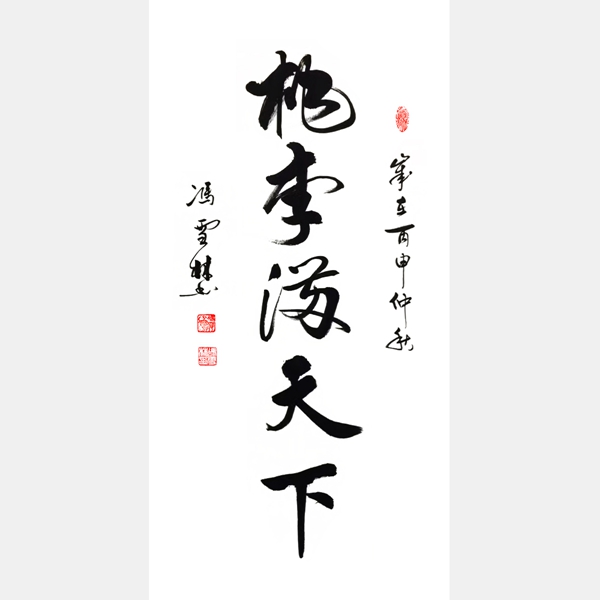 歲在丙申仲秋
桃李滿天下
馮雪林书